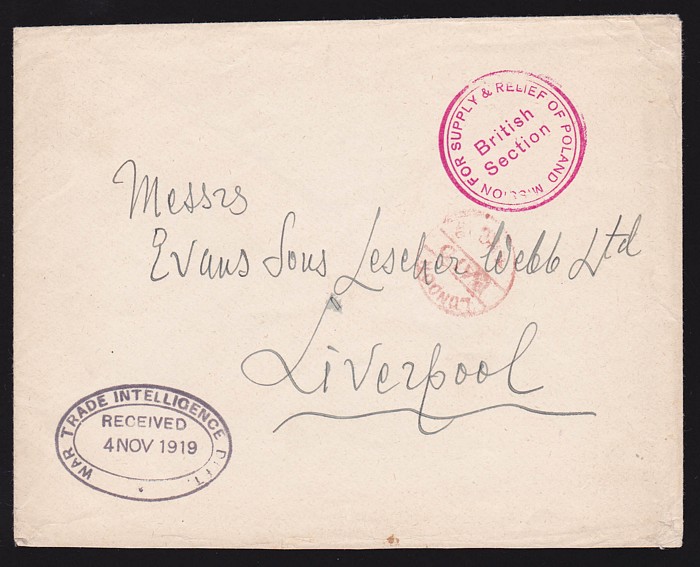 MISSION FOR SUPPLY & RELIEF OF POLAND
British
Section
Messrs
Evans Sons Lescher Webb Ltd
Liverpool
LONDON
WAR TRADE INTELLIGENCE DEPT.
RECEIVED
4 NOV 1919